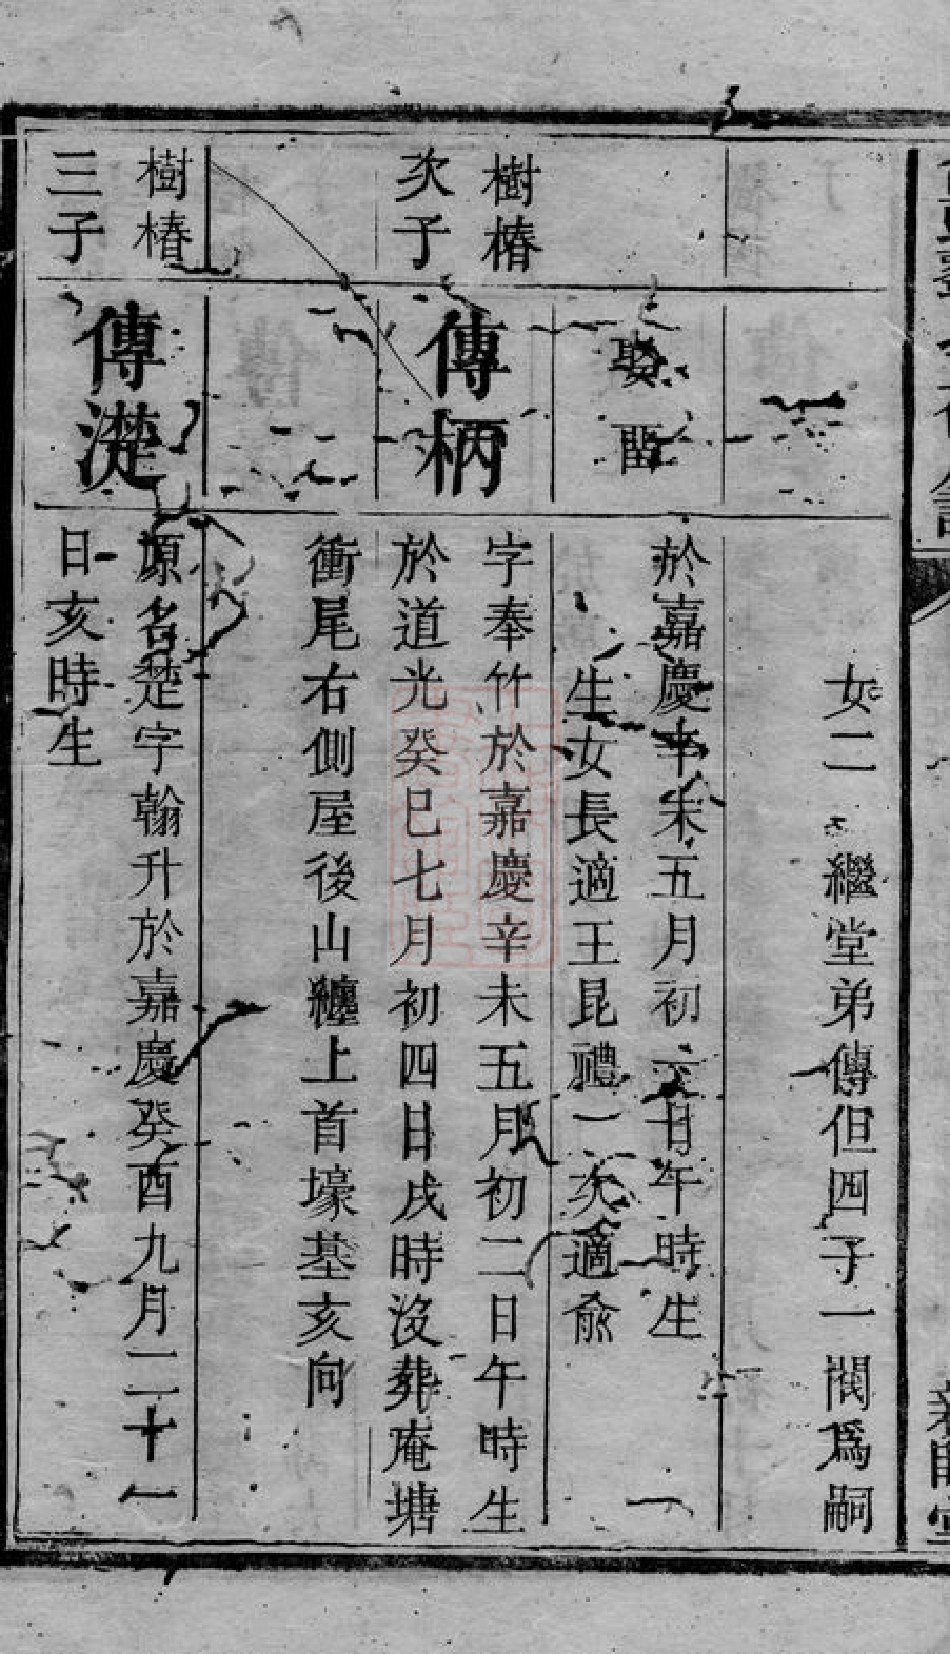 女二 繼堂弟傳但四子一閥爲嗣
娶
於嘉慶辛未五月初六日午時生 一
生女長適王昆禮一次適俞
樹椿
次子
傳柄
字奉竹於嘉慶辛未五月初二日午時生
於道光癸巳七月初四日戌時沒葬庵塘
衝尾右側屋後山纏上首壕基亥向
樹椿
三子
傳濋
原名楚字翰升於嘉慶癸酉九月二十一
日亥時生